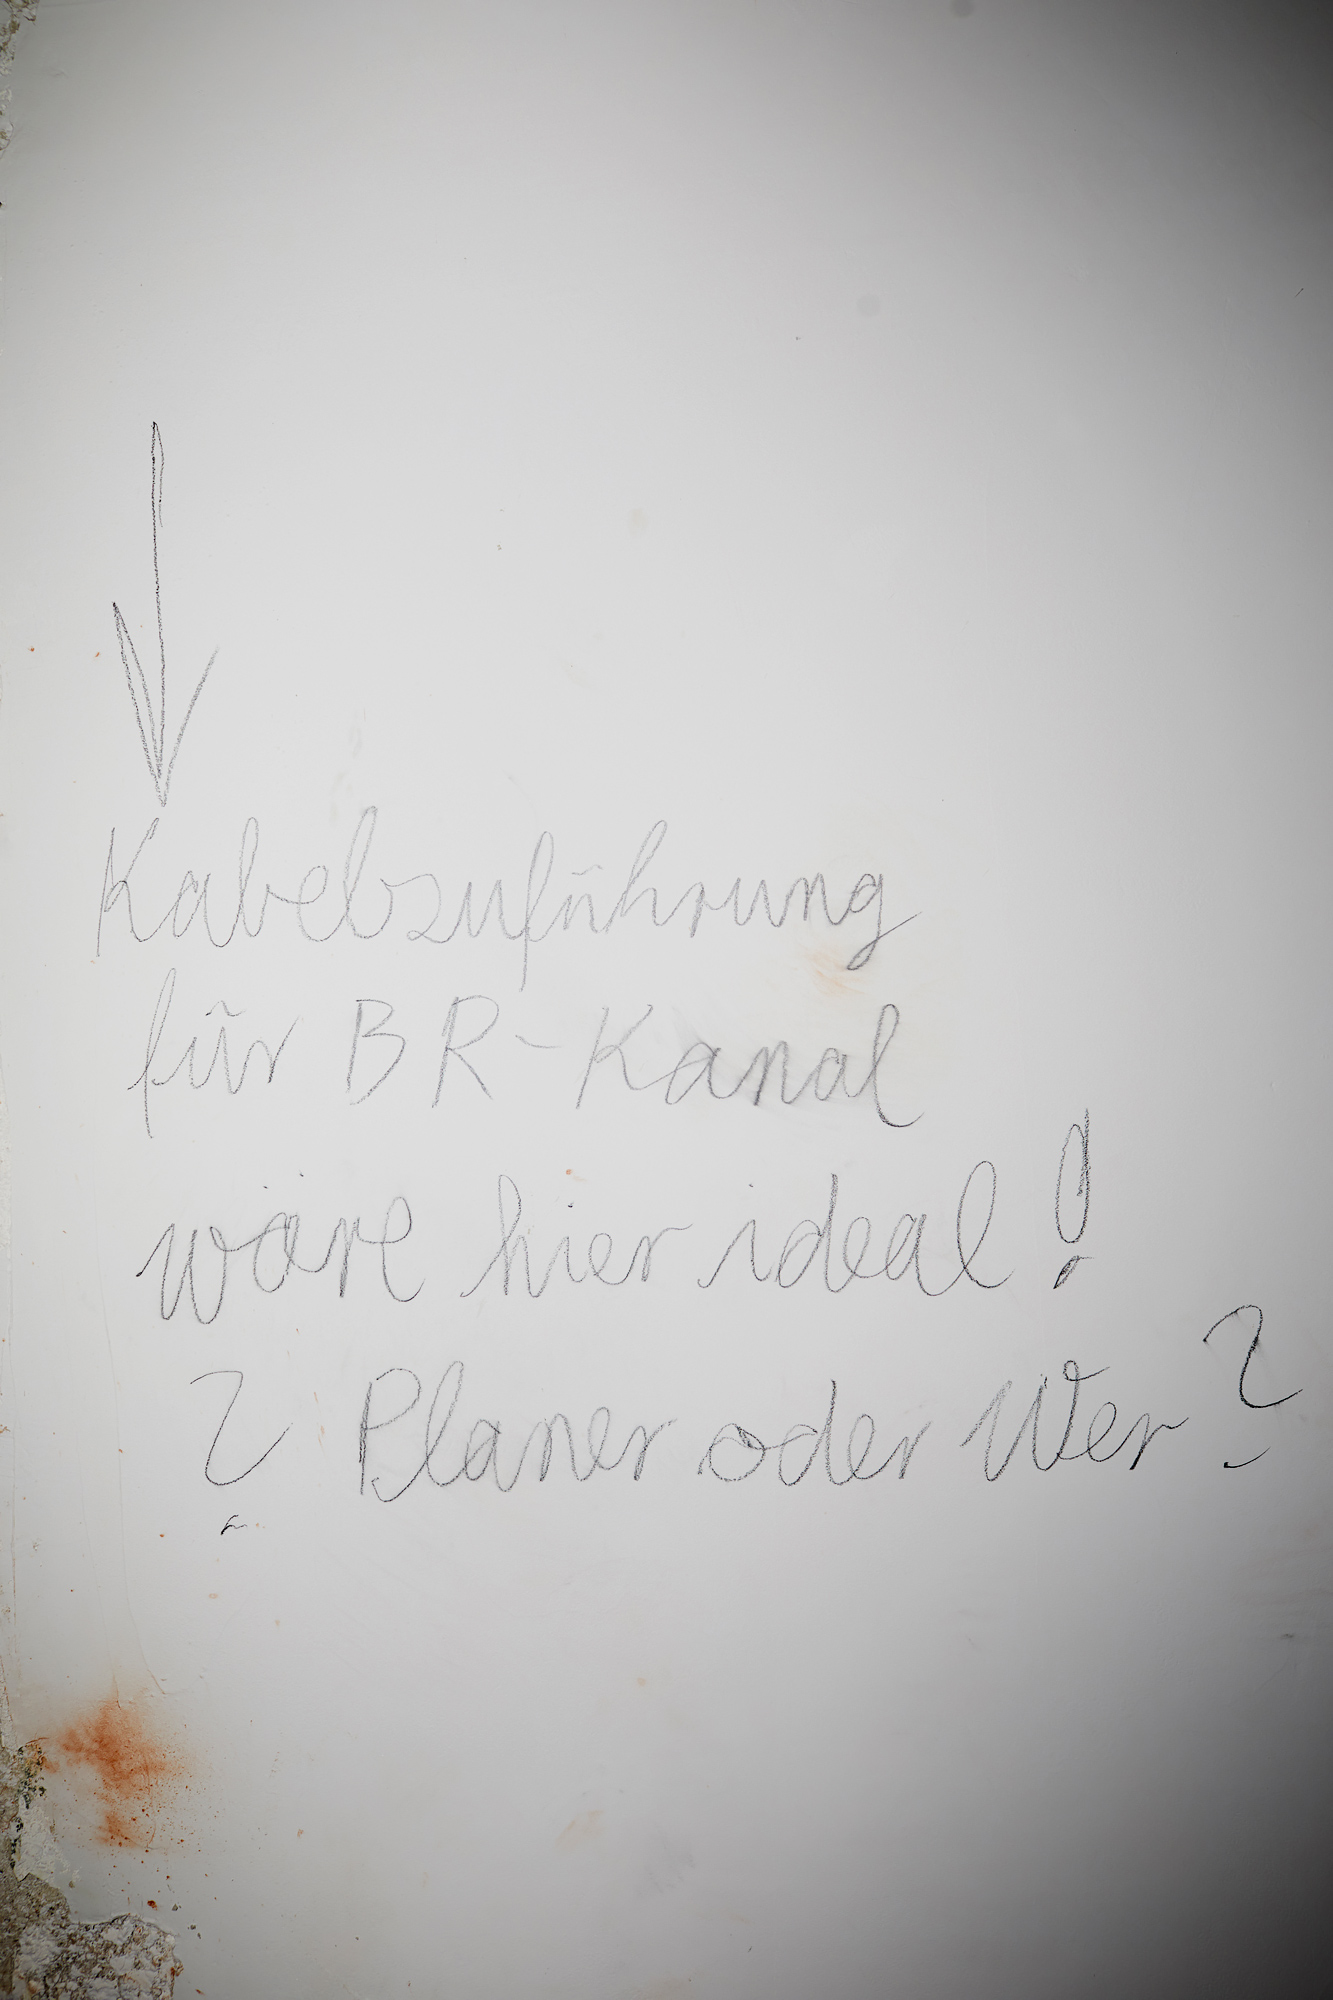 Kabelzuführung
für BR-Kanal
wäre hier ideal!
? Planer oder Wer?